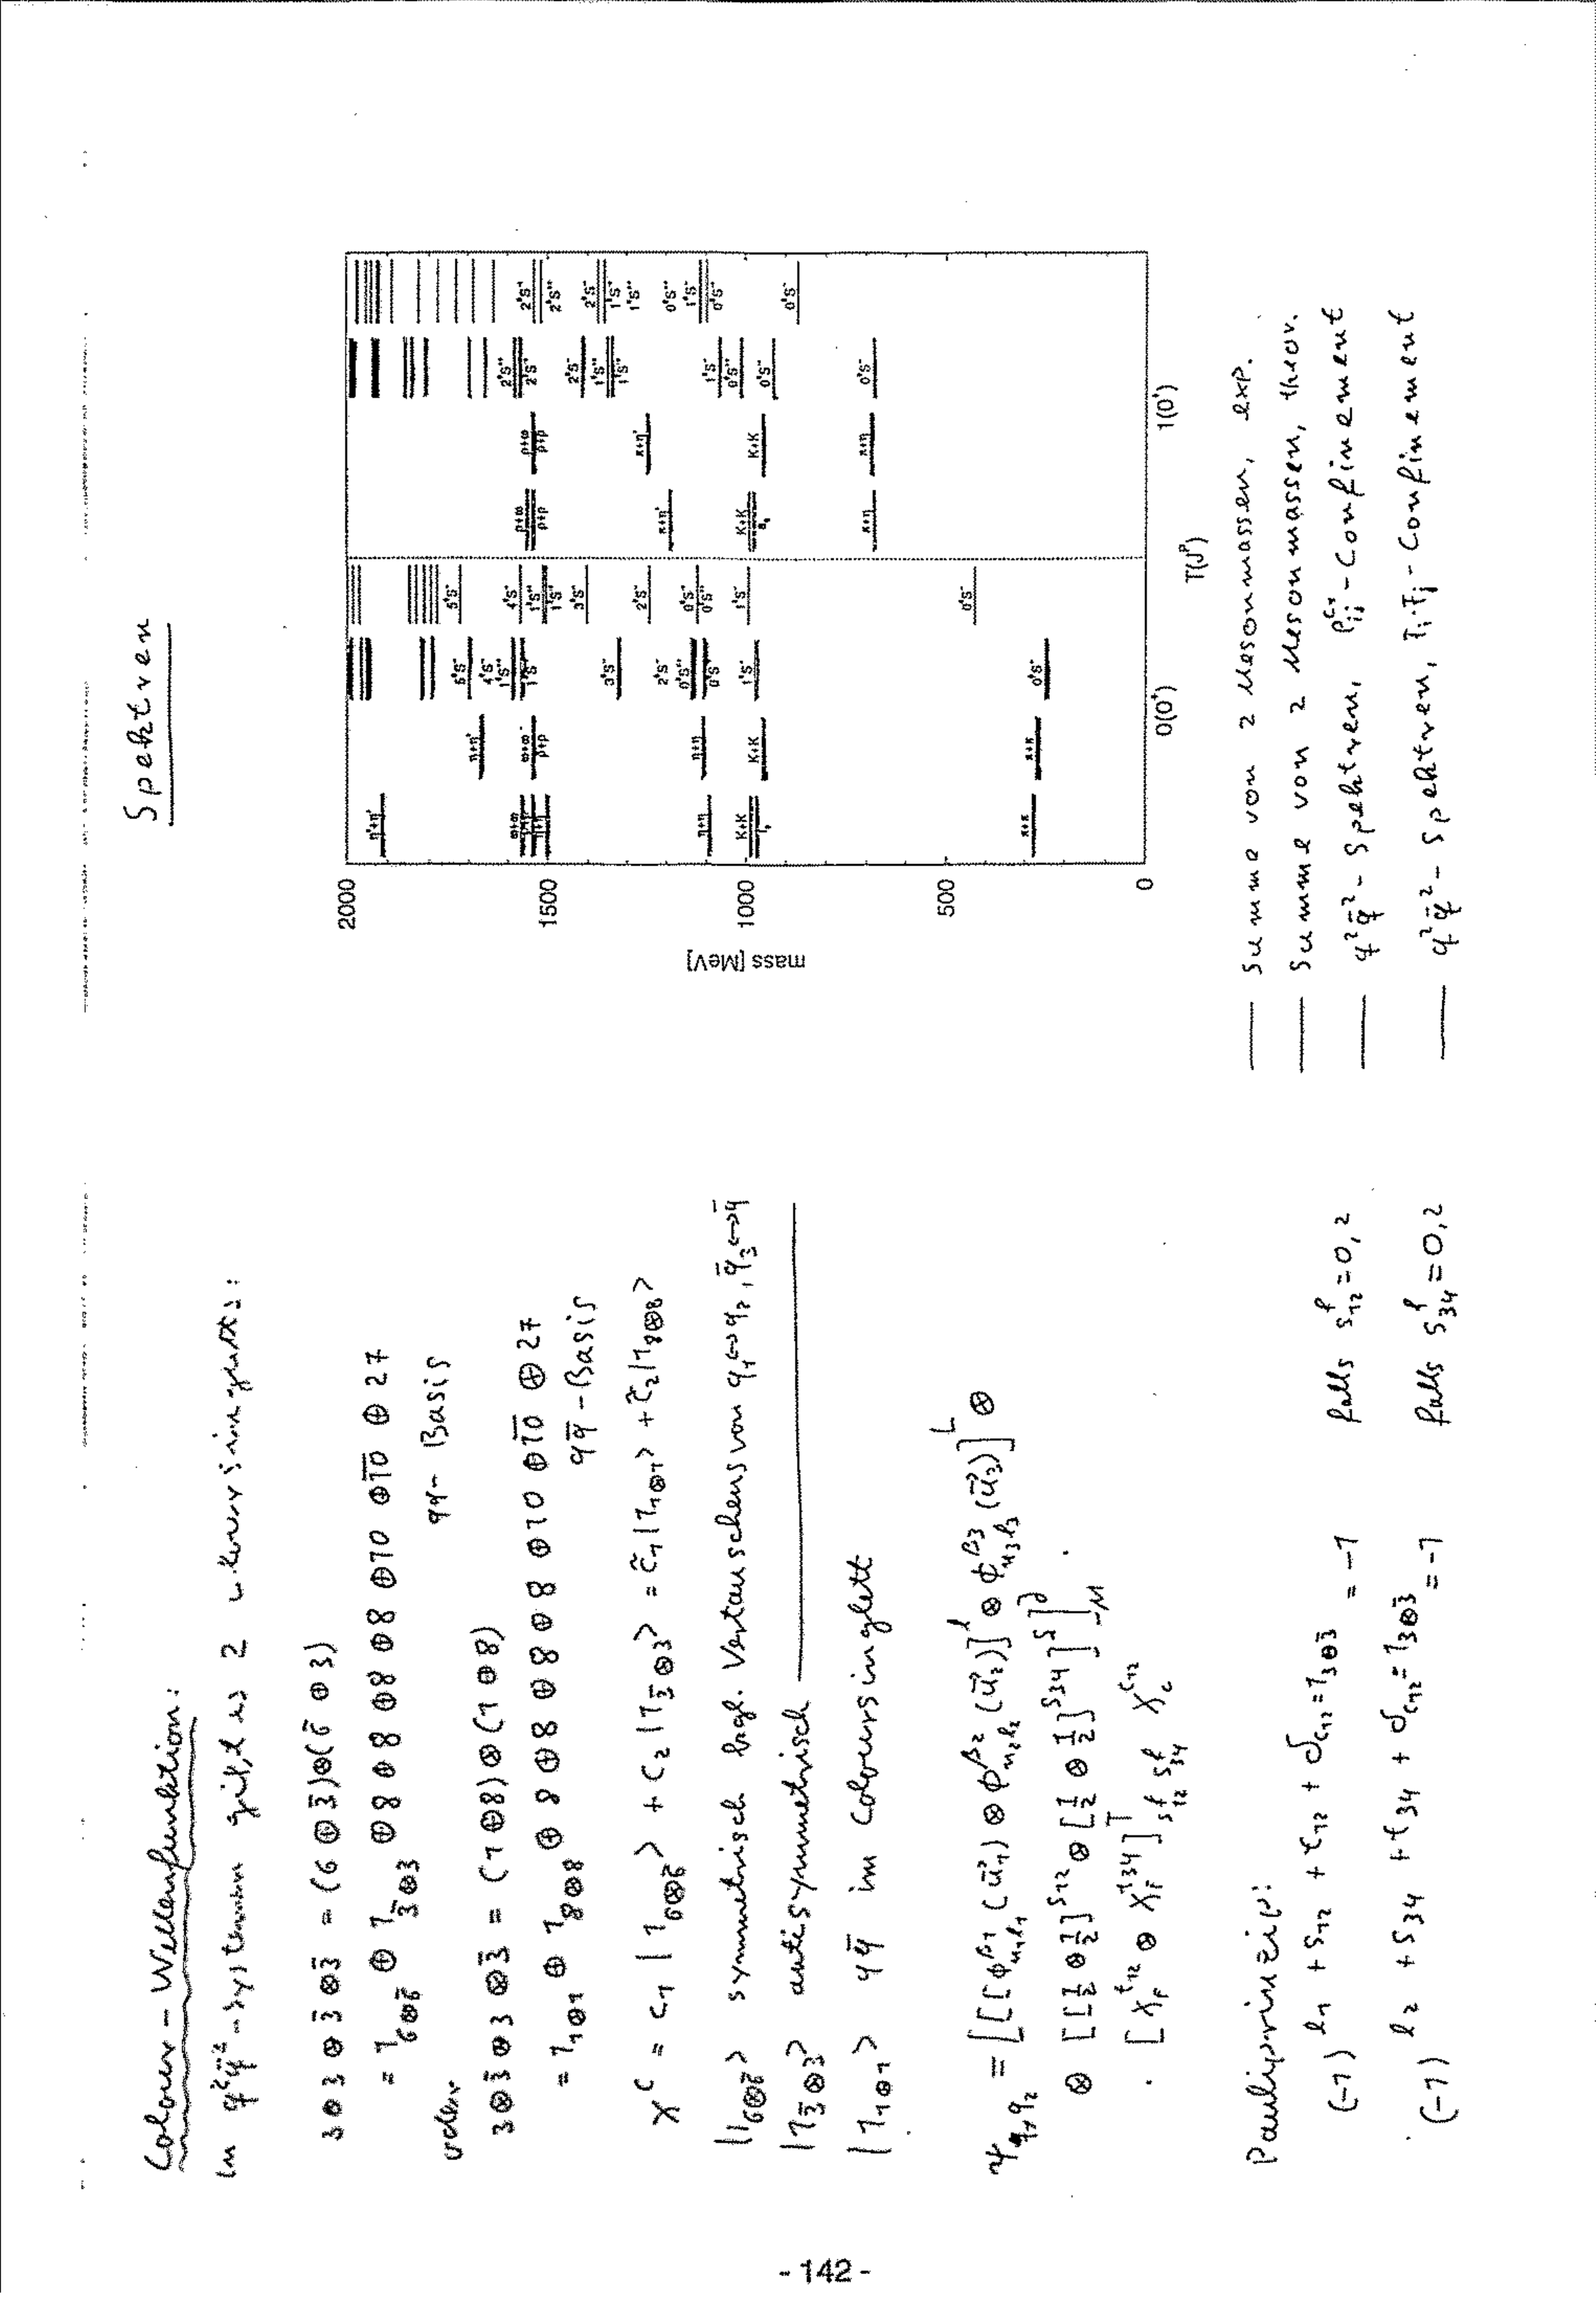 Colour-Wellenfunktion:
Im q²q̄²-System gibt es 2 Coloursinguletts:
3 ⊗ 3 ⊗ 3̄ ⊗ 3̄ = (6 ⊕ 3̄) ⊗ (6̄ ⊕ 3)
= 1_{6⊗6̄} ⊕ 1_{3̄⊗3} ⊕ 8 ⊕ 8 ⊕ 8 ⊕ 8 ⊕ 10 ⊕ 1̄0̄ ⊕ 27
qq-Basis
oder
3 ⊗ 3̄ ⊗ 3 ⊗ 3̄ = (1 ⊕ 8) ⊗ (1 ⊕ 8)
= 1_{1⊗1} ⊕ 1_{8⊗8} ⊕ 8 ⊕ 8 ⊕ 8 ⊕ 8 ⊕ 10 ⊕ 1̄0̄ ⊕ 27
qq̄-Basis
χ^C = c₁ |1_{6⊗6̄}> + c₂ |1_{3̄⊗3}> = c̃₁ |1_{1⊗1}> + c̃₂ |1_{8⊗8}>
|1_{6⊗6̄}> symmetrisch bzgl. Vertauschens von q₁↔q₂, q̄₃↔q̄
|1_{3̄⊗3}> antisymmetrisch
|1_{1⊗1}> qq̄ im Coloursinglett
= [[[ϕ^{β₁}_{n₁l₁}(u⃗₁) ⊗ ϕ^{β₂}_{n₂l₂}(u⃗₂)]^l ⊗ ϕ^{β₃}_{n₃l₃}(u⃗₃)]^L ⊗
⊗ [[½ ⊗ ½]^{S₁₂} ⊗ [½ ⊗ ½]^{S₃₄}]^S]^J_M ·
· [χ_F^{t₁₂} ⊗ χ_F^{t₃₄}]^T_{s^f_{12} s^f_{34}} χ_c^{C₁₂}
Pauliprinzip:
(-1)^{l₁ + s₁₂ + t₁₂ + δ_{C₁₂=1_{3⊗3̄}}} = -1 falls s^f_{12} = 0,2
(-1)^{l₂ + s₃₄ + t₃₄ + δ_{C₁₂=1_{3⊗3̄}}} = -1 falls s^f_{34} = 0,2
Spektren
mass [MeV]
2000
1500
1000
500
0
η'+η'
ω+ω
η+η
K+K
π+π
η+η'
ω+ω
ρ+ρ
η+η
K+K
π+π
5⁺S⁻
4⁺S⁻
3⁺S⁻
2⁺S⁻
1⁺S⁻
0⁺S⁻
5⁺S⁻
4⁺S⁻
3⁺S⁻
2⁺S⁻
1⁺S⁻
0⁺S⁻
ρ+ω
ρ+ρ
π+η'
K+K
a₀
π+η
ρ+ω
ρ+ρ
π+η'
K+K
π+η
2⁺S⁻
1⁺S⁻
0⁺S⁻
2⁺S⁻
1⁺S⁻
0⁺S⁻
0(0⁺)
1(0⁺)
T(J^P)
— Summe von 2 Mesonmassen, exp.
— Summe von 2 Mesonmassen, theor.
— q²q̄²-Spektren, P_{ij}^{C,1}-Confinement
— q²q̄²-Spektren, F_i·F_j-Confinement
- 142 -